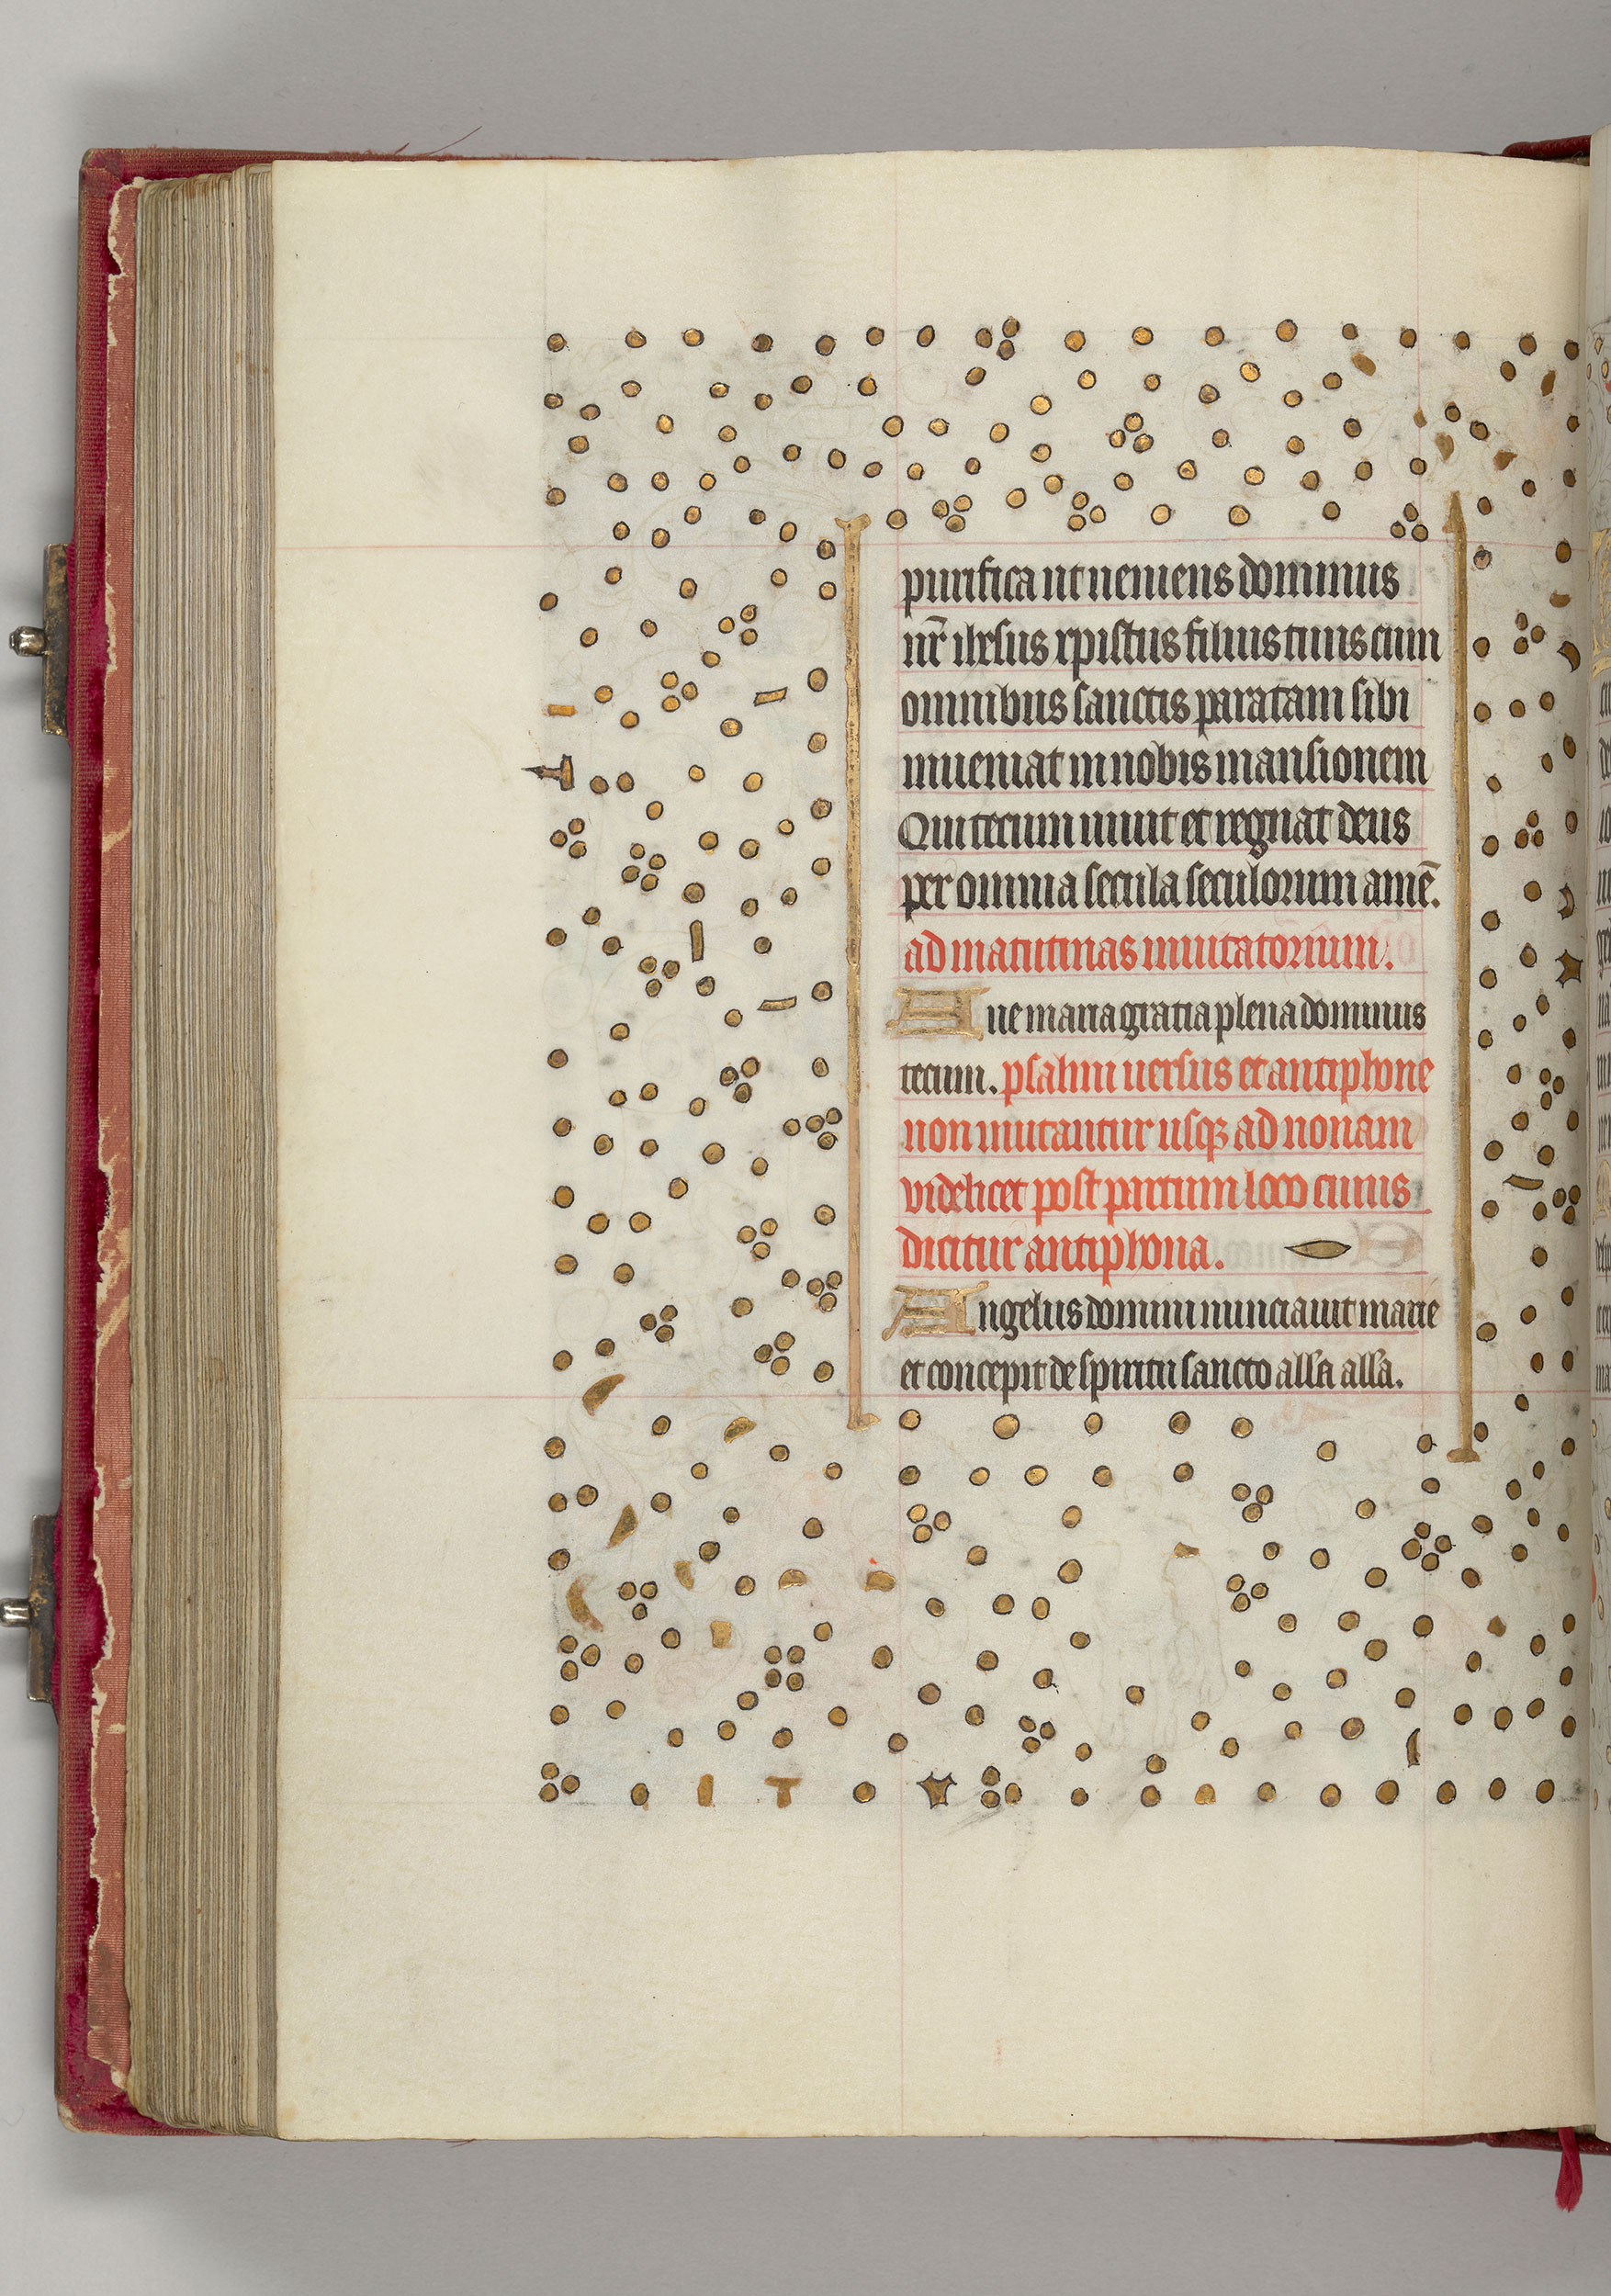 purifica ut ueniens dominus
nr̄ ihesus xpistus filius tuus cum
omnibus sanctis paratam sibi
inueniat in nobis mansionem
Qui tecum uiuit et regnat deus
per omnia secula seculorum amē.
ad matutinas inuitatorium.
Aue maria gratia plena dominus
tecum. psalmi uersus et antiphone
non mutantur usqꝫ ad nonam
videlicet post partum loco cuius
dicitur antiphona.
Angelus domini nunciauit marie
et concepit de spiritu sancto alla alla.